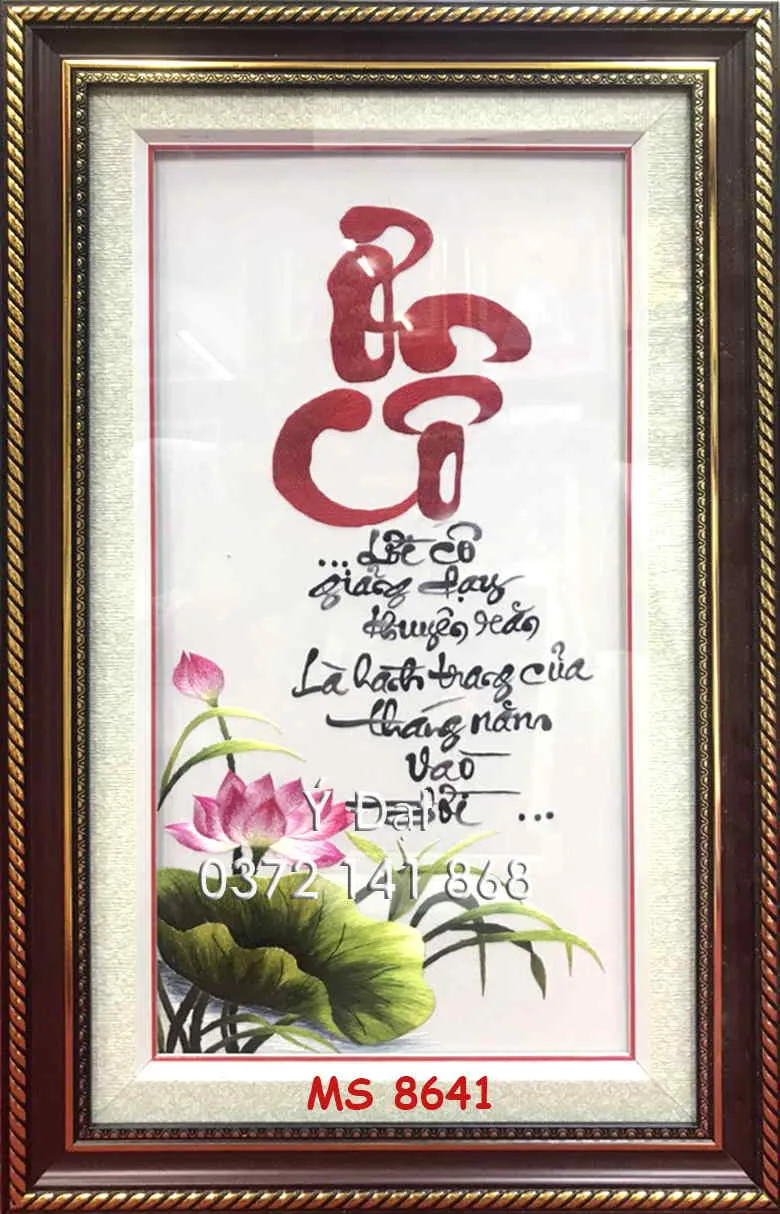 Ơn
Cô
... Lời cô
giảng dạy
khuyên răn
Là hành trang của
tháng năm
vào
đời ...
0372 141 868
MS 8641